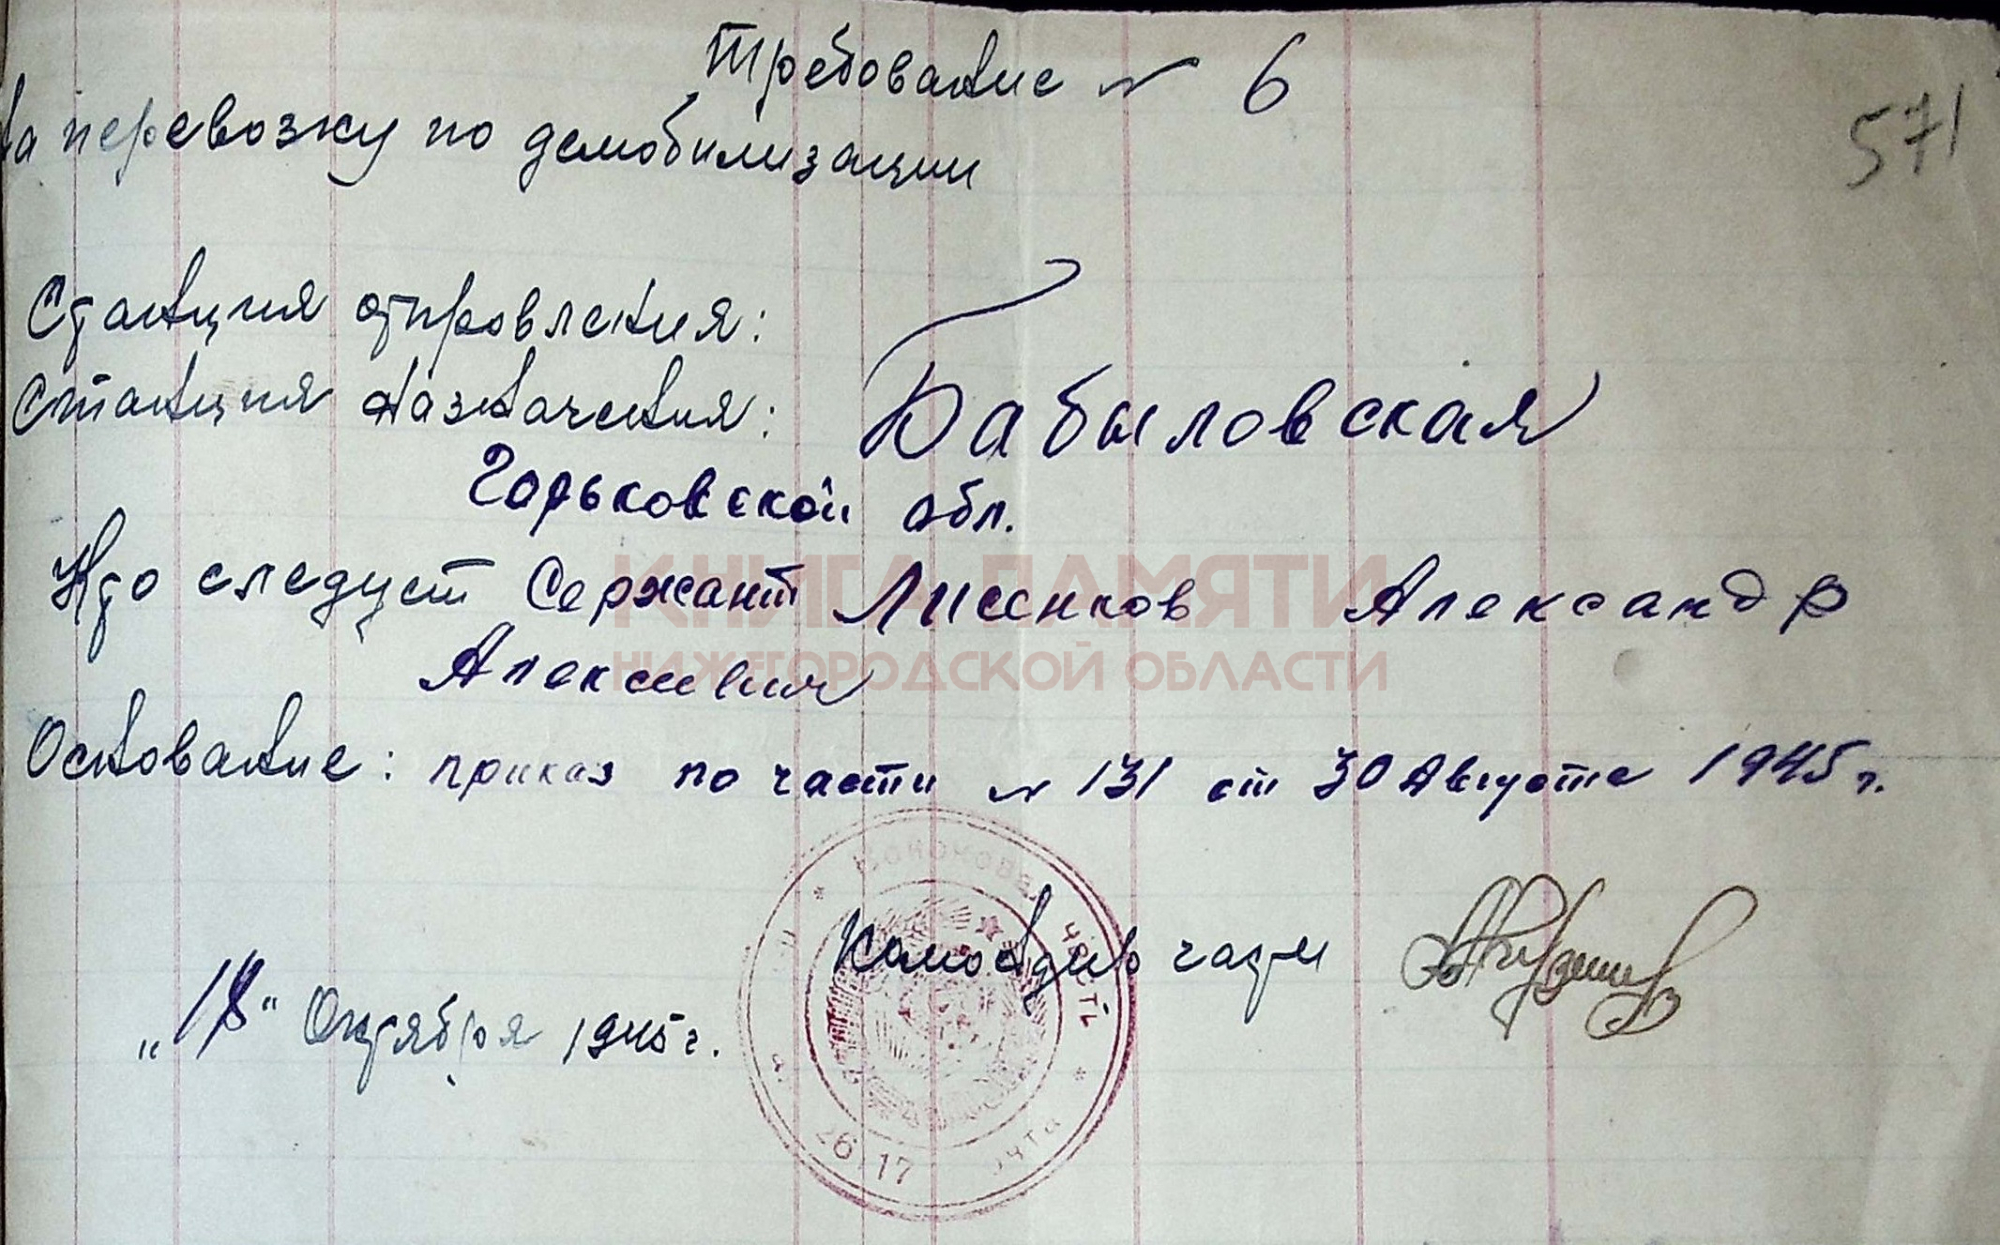 Требование № 6
571
на перевозку по демобилизации
Станция отправления:
Станция назначения: Бабыловская
Горьковской обл.
Кто следует Сержант Лисенков Александр
Алексеевич
КНИГА ПАМЯТИ
НИЖЕГОРОДСКОЙ ОБЛАСТИ
Основание: приказ по части № 131 от 30 Августа 1945 г.
Войсковая часть
Командир части
" Октября 1945 г.
17